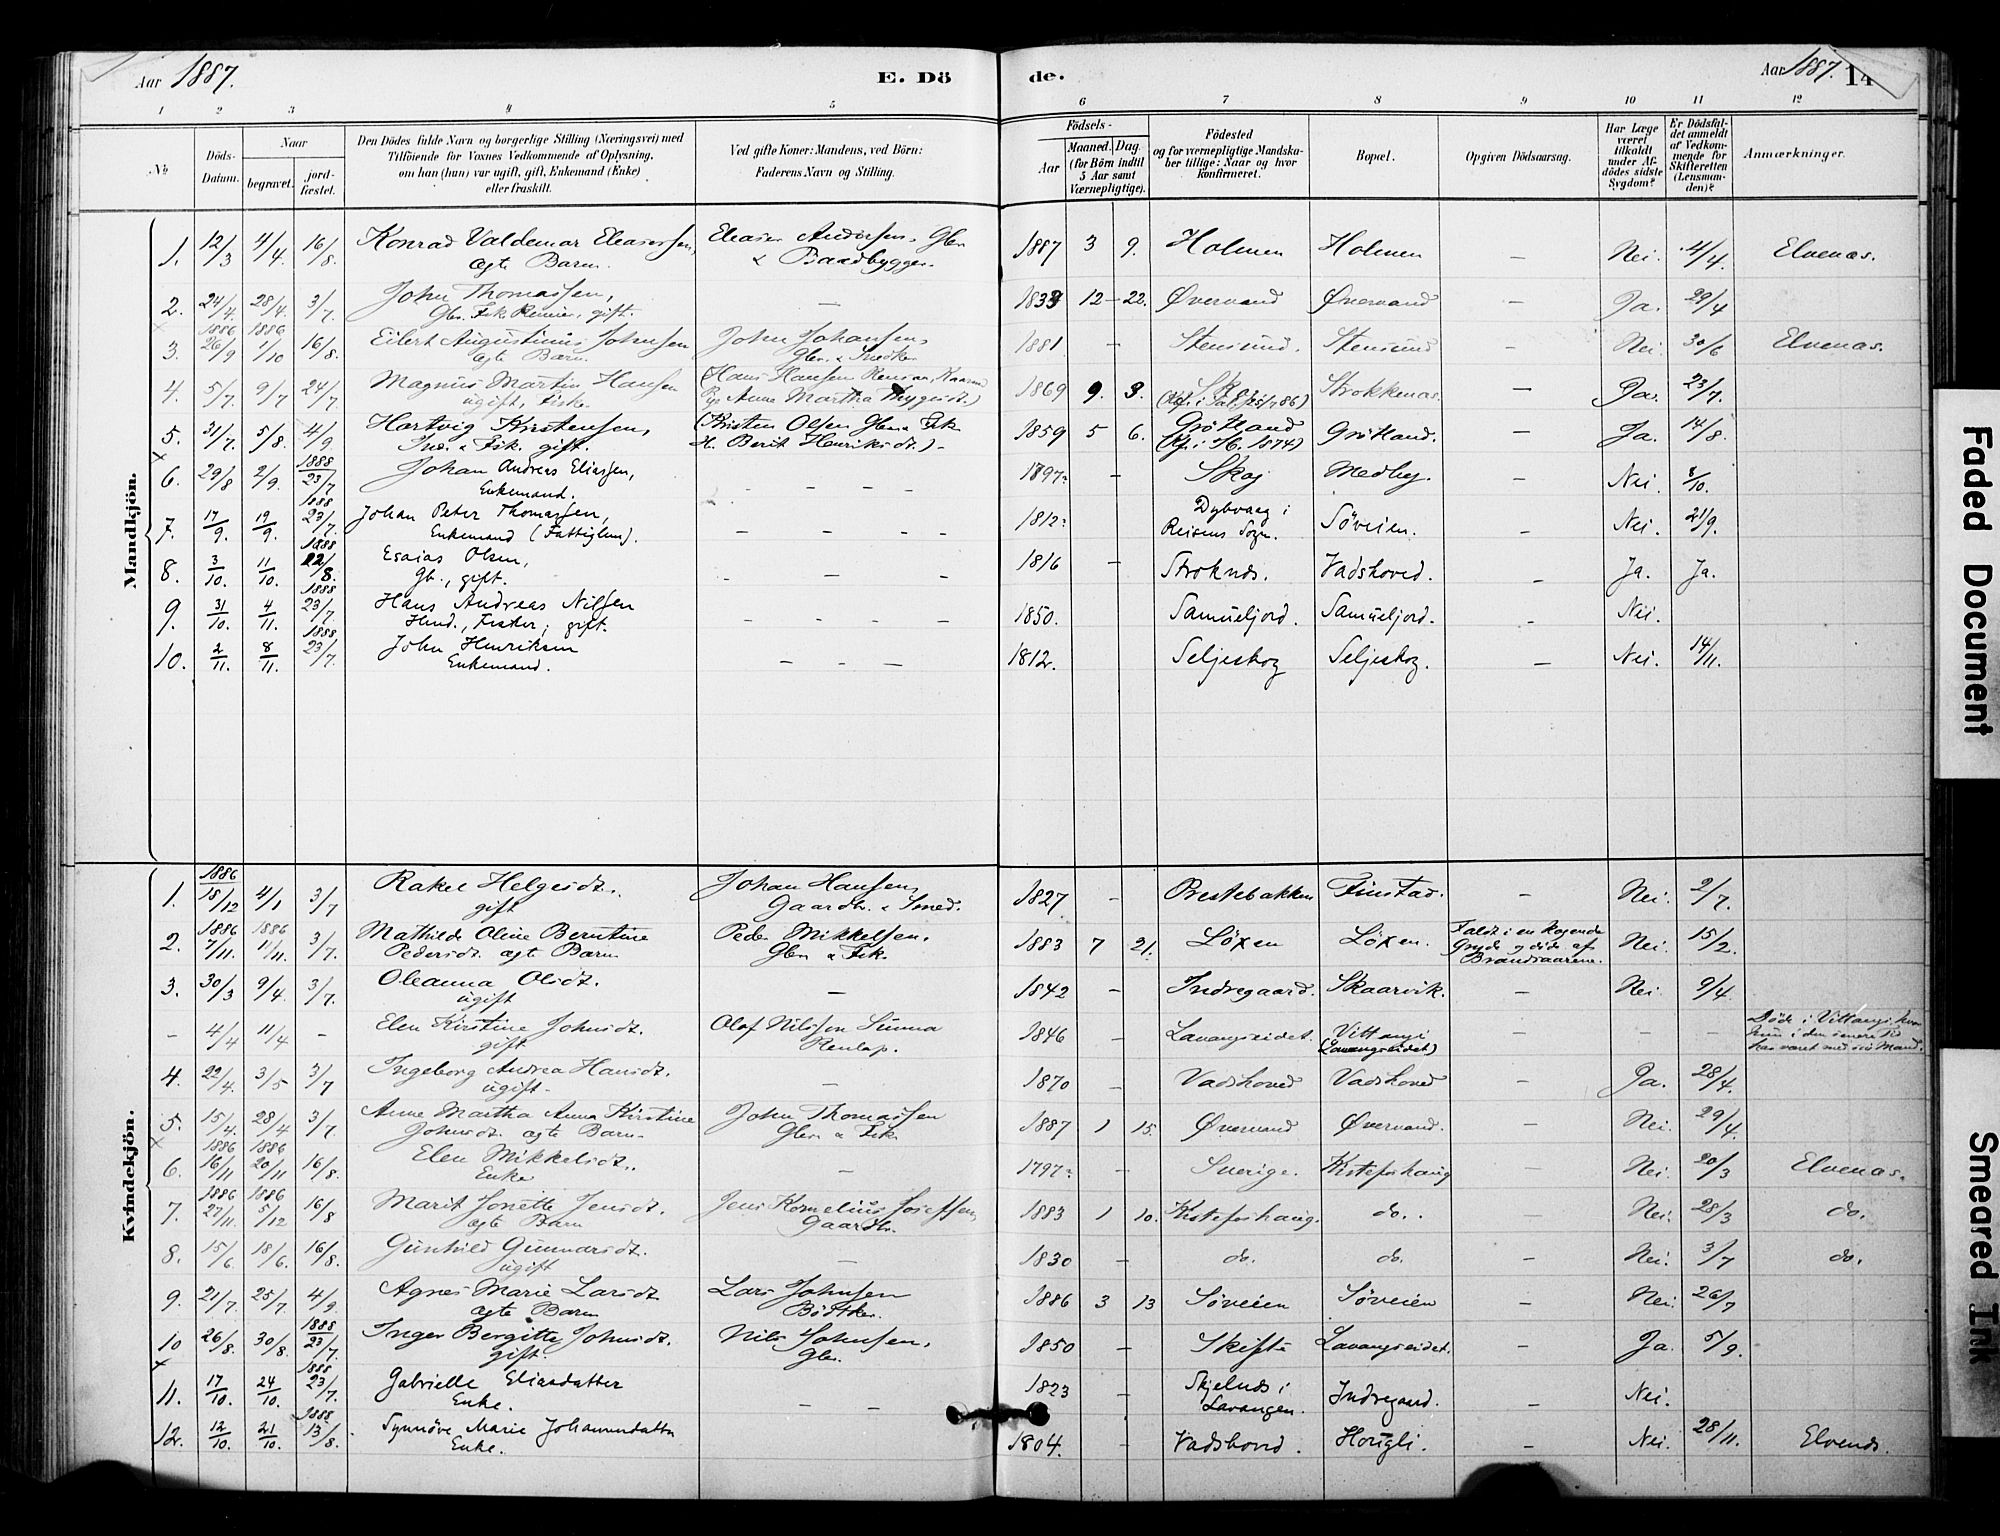 Aar 1887.
E. Döde.
Aar 1887. 14
1 2 3 4 5 6 7 8 9 10 11 12
No
Döds-Datum.
Naar
begravet.
jord-fæstet.
Den Dödes fulde Navn og borgerlige Stilling (Næringsvei) med
Tilföiende for Voxnes Vedkommende af Oplysning,
om han (hun) var ugift, gift, Enkemand (Enke)
eller fraskilt.
Ved gifte Koner: Mandens, ved Börn:
Faderens Navn og Stilling.
Födsels-
Aar
Maaned. Dag
(for Börn indtil
5 Aar samt
Værnepligtige).
Födested
og for værnepligtige Mandska-
ber tillige: Naar og hvor
konfirmeret.
Bopæl.
Opgiven Dödsaarsag.
Har Læge
været
tilkaldt
under Af-
dödes sidste
Sygdom?
Er Dödsfal-
det anmeldt
af Vedkom-
mende for
Skifteretten
(Lensman-
den)?
Anmærkninger.
Mandkjön.
1. 12/3 4/4. 16/8. Konrad Valdemar Eleasersen, Eleaser Andersen, Gbr 1887 3 9. Holmen Holmen — Nei. 4/4. Elvenæs.
ægte Barn. & Baadbygger.
2. 24/4. 28/4. 3/7. John Thomassen, — 12 — 22. Øvervand Øvervand — Ja. 29/4
Gbr. Fisk. gift.
1886 1886
3. 26/9 1/10 16/8. Eilert Augustinus Johnsen John Johansen, 1881 — Stensund. Stensund — Nei. 30/6 Elvenæs.
ægte Barn. Gbr. & Snedker
4. 5/7. 9/7 24/7. Magnus Martin Hansen (Hans Hansen 1869 9. 3. Strokkenæs. — Ja. 23/7.
ugift, Fisk. Anne Martha
5. 31/7. 5/8. 4/9. Hartvig Kristensen, (Kristen Olsen 1859 5 6. Grötland Grötland. — Ja. 14/8.
Ind. & Fisk. gift. H. Berit Henriksdt.) - (Kf. i 1874)
1888
6. 29/8 2/9. 23/7 Johan Andreas Eliassen, — — — — 1797? — Skog Medby. — Nei. 8/10.
Enkemand.
1888
7. 17/9. 19/9. 23/7. Johan Peter Thomassen, — — — — 1812? Dybvaag i Söveien. — Nei. 21/9.
Enkemand (Fattiglem). Reisens Sogn.
1888
8. 3/10. 11/10. 22/8. Esaias Olsen, — — — 1816 — Stroknæs. Vadshoved. — Ja. Ja.
Gb., gift.
1888
9. 31/10. 4/11. 23/7. Hans Andreas Nilsen — — — — 1850. Samueljord. Samueljord. — Nei.
Husd., Fisker, gift.
1888.
10. 2/11. 8/11. 23/7. John Henriksen — — — 1812. Seljeskog Seljeskog. — Nei. 14/11.
Enkemand.
Kvindekjön.
1886
1. 18/12 4/1 3/7 Rakel Helgesdt. Johan Hansen, 1827 — Prestebakken Finstad. — Nei. 2/7.
gift Gaardbr. & Smed.
1886 1886
2. 7/11. 11/11. 3/7. Mathilde Oline Berntine Peder Mikkelsen. 1883 7 21. Löxen Löxen. Faldt i en kogende Nei. 15/2.
Pedersdt. ægte Barn Gbr. & Fisk. Gryde og döde af
Brandsaarene.
3. 30/3 9/4. 3/7. Oleanna Olsdt. — 1842 — Indregaard. Skaarvik. — Nei. 9/4.
ugift
— 4/4 11/4 — Elen Kirstine Johnsdt. Olof Nilsson Sunna 1846 — Lavangseidet. Vittangi — — — Döde i Vittangi hvor
gift Renlap. (Lavangseidet) hun i den senere Tid
har været med sin Mand.
4. 22/4. 3/5 3/7 Ingeborg Andrea Hansdt. — 1870 — Vadshoved Vadshoved — Ja. 28/4.
ugift.
5. 15/4. 28/4 3/7. Anne Martha Anna Kirstine John Thomassen 1887 1 15. Øvervand Øvervand. — Nei. 29/4.
Johnsdt. ægte Barn. Gbr. & Fisk.
1886 1886
6. 16/11 20/11 16/8. Elen Mikkelsdt. — 1797? — Sverige. Kisteforshaug — Nei. 20/3 Elvenæs.
Enke
1886 1886
7. 27/11. 5/12 16/8 Marit Jonette Jensdt. Jens Kornelius Josefsen 1883 1 10. Kisteforshaug. do. — Nei. 28/3 do.
ægte Barn Gaardbr.
8. 15/6. 18/6. 16/8. Gunhild Gunnarsdt. — 1830 — do. do. — Nei. 3/7 do.
ugift
9. 21/7. 25/7. 4/9. Agnes Marie Larsdt Lars Johnsen 1886 3 13 Söveien Söveien — Nei. 26/7
ægte Barn Bödtker.
1888
10 26/8. 30/8. 23/7. Inger Bergitte Johnsdt. Nils Johnsen, 1850 — Skifte Lavangseidet. — Ja. 5/9.
gift. Gbr.
1888
11. 17/10. 24/10. 23/7. Gabrielle Eliasdatter — — 1823 — Skjelnæs i Indregaard. — Nei.
Enke. Lavangen.
1888
12. 12/10. 21/10. 13/8. Synnöve Marie Johannesdatter 1804. — Vadshoved. Hougli. — Nei. 28/11. Elvenæs.
Enke.
Faded Document
Smeared Ink